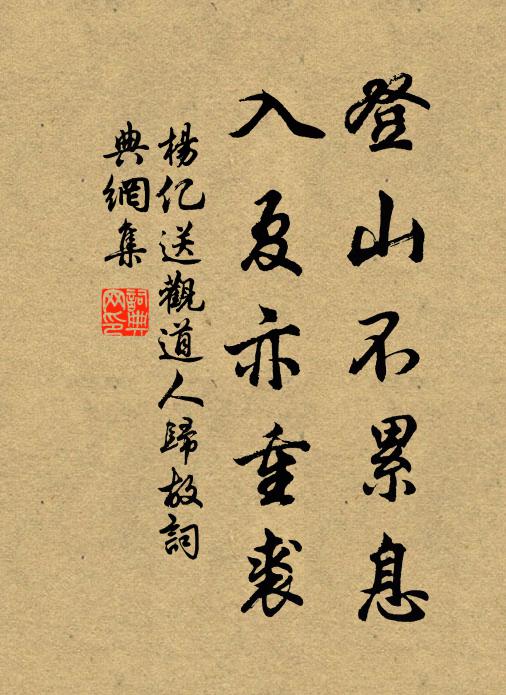 登山不累息
入夏亦重裘
楊亿送觀道人歸故詞
典網集
詞典
网印